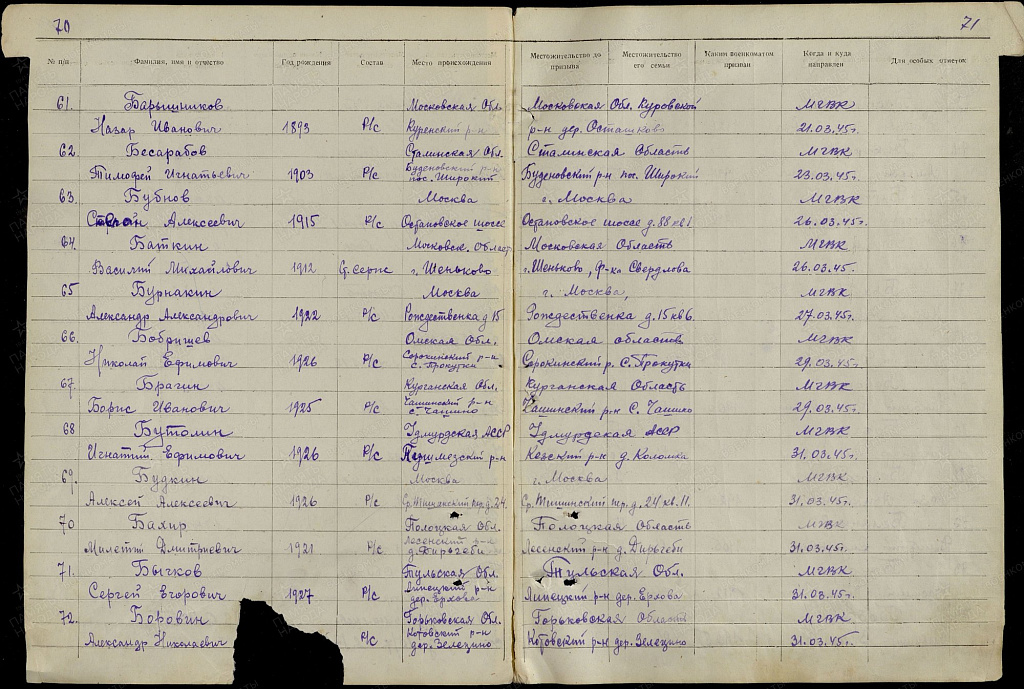 70
71
№ п/п. Фамилия, имя и отчество Год рождения Состав Место происхождения Местожительство до призыва Местожительство его семьи Каким военкоматом призван Когда и куда направлен Для особых отметок
61. Барышников Московская Обл. Московская Обл. Куровской МГВК
Назар Иванович 1893 Р/с Куренский р-н р-н дер. Осташково 21.03.45г.
62. Бесарабов Сталинская Обл. Сталинская Область МГВК
Тимофей Игнатьевич 1903 Р/с Буденовский р-н пос. Широкий Буденовский р-н пос. Широкий 23.03.45г.
63. Бубнов Москва г. Москва МГВК
Алексеевич 1915 Р/с Остановское шоссе Остановское шоссе д. 88 кв 1 26.03.45г.
64. Баткин Московск. Област Московская Область МГВК
Василий Михайлович 1912 Ст. серж г. Шеньково г. Шеньково, Ф-ка Свердлова 26.03.45г.
65 Бурнакин Москва г. Москва, МГВК
Александр Александрович 1922 Р/с Рождественка д 15 Рождественка д. 15 кв 6. 27.03.45г.
66. Бобрищев Омская Обл. Омская область МГВК
Николай Ефимович 1926 Р/с Сорокинский р-н С. Прокутки Сорокинский р. С. Прокутки 29.03.45г.
67. Брагин Курганская Обл. Курганская Область МГВК
Борис Иванович 1925 Р/с Чашинский р-н С. Чашино Чашинский р-н С. Чашино 29.03.45г.
68 Бутолин Удмурдская АССР Удмурдская АССР МГВК
Игнатий Ефимович 1926 Р/с р-н Кезский р-н д. Коломка 31.03.45г.
69. Будкин Москва г. Москва МГВК
Алексей Алексеевич 1926 Р/с Ср. пер. д. 24 Ср. Тишинский пер. д. 24 кв. 11. 31.03.45г.
70 Бахир Полоцкая Обл. Полоцкая Область МГВК
Милетий Дмитриевич 1921 Р/с Лесенский р-н д. Дирьгеби Лесенский р-н д. Дирьгеби 31.03.45г.
71. Бычков Тульская Обл. Тульская Обл. МГВК
Сергей Егорович 1927 Р/с Липецкий р-н дер. Ерхова Липецкий р-н дер. Ерхова 31.03.45г.
72. Боровин Горьковская Обл. Горьковская Область МГВК
Александр Николаевич Р/с Котовский р-н дер. Зелецино Котовский р-н дер. Зелецино 31.03.45г.